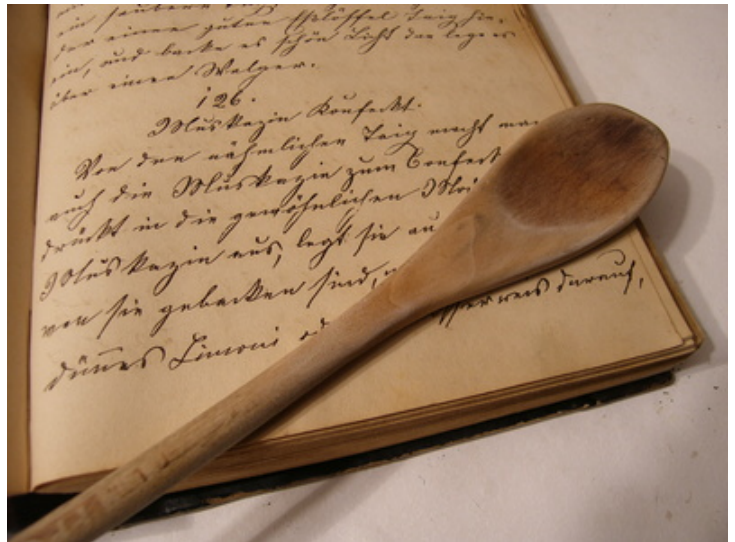 ein saubere
der einen guten Esslöffel Taig hin,
ein, und backe es schön Licht dan lege es
über einen Walger.
126.
Muskazin Konfeckt.
Von den nähmlichen Taig macht man
auch die Muskazin zum Confect
drückt in die gewöhnlichen
Muskazin aus, legt sie au
wen sie gebacken sind,
dünnes Limoni od darauf,